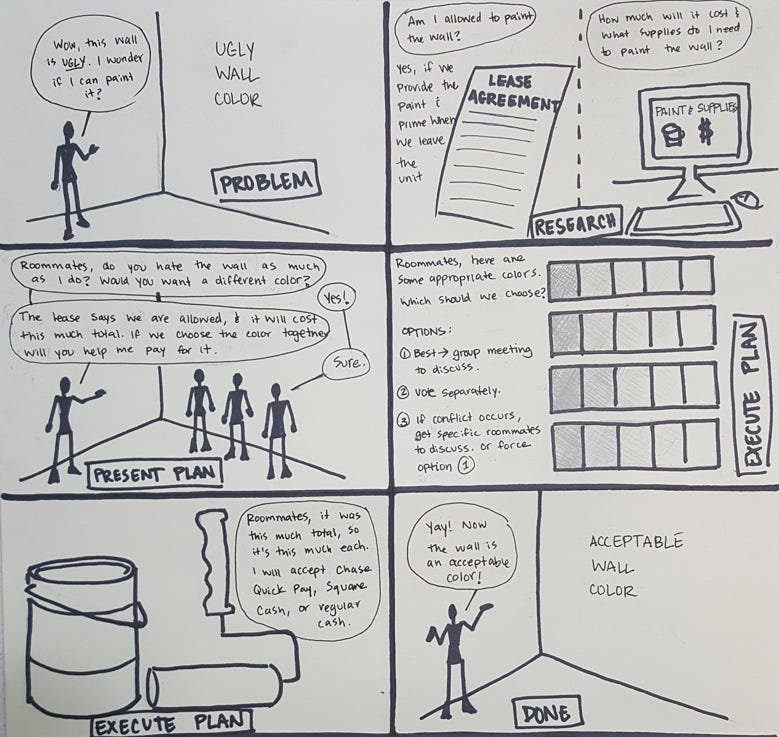 Wow, this wall
is UGLY. I wonder
if I can paint
it?
UGLY
WALL
COLOR
PROBLEM
Am I allowed to paint
the wall?
Yes, if we
provide the
paint &
prime when
we leave
the
unit
LEASE
AGREEMENT
How much will it cost &
what supplies do I need
to paint the wall?
PAINT & SUPPLIES
$
RESEARCH
Roommates, do you hate the wall as much
as I do? Would you want a different color?
Yes!
The lease says we are allowed, & it will cost
this much total. If we choose the color together
will you help me pay for it.
Sure.
PRESENT PLAN
Roommates, here are
some appropriate colors.
Which should we choose?
OPTIONS:
① Best → group meeting
to discuss.
② Vote separately.
③ If conflict occurs,
get specific roommates
to discuss. or force
option ①
EXECUTE PLAN
Roommates, it was
this much total, so
it's this much each.
I will accept Chase
Quick Pay, Square
Cash, or regular
cash.
EXECUTE PLAN
Yay! Now
the wall is
an acceptable
color!
ACCEPTABLE
WALL
COLOR
DONE